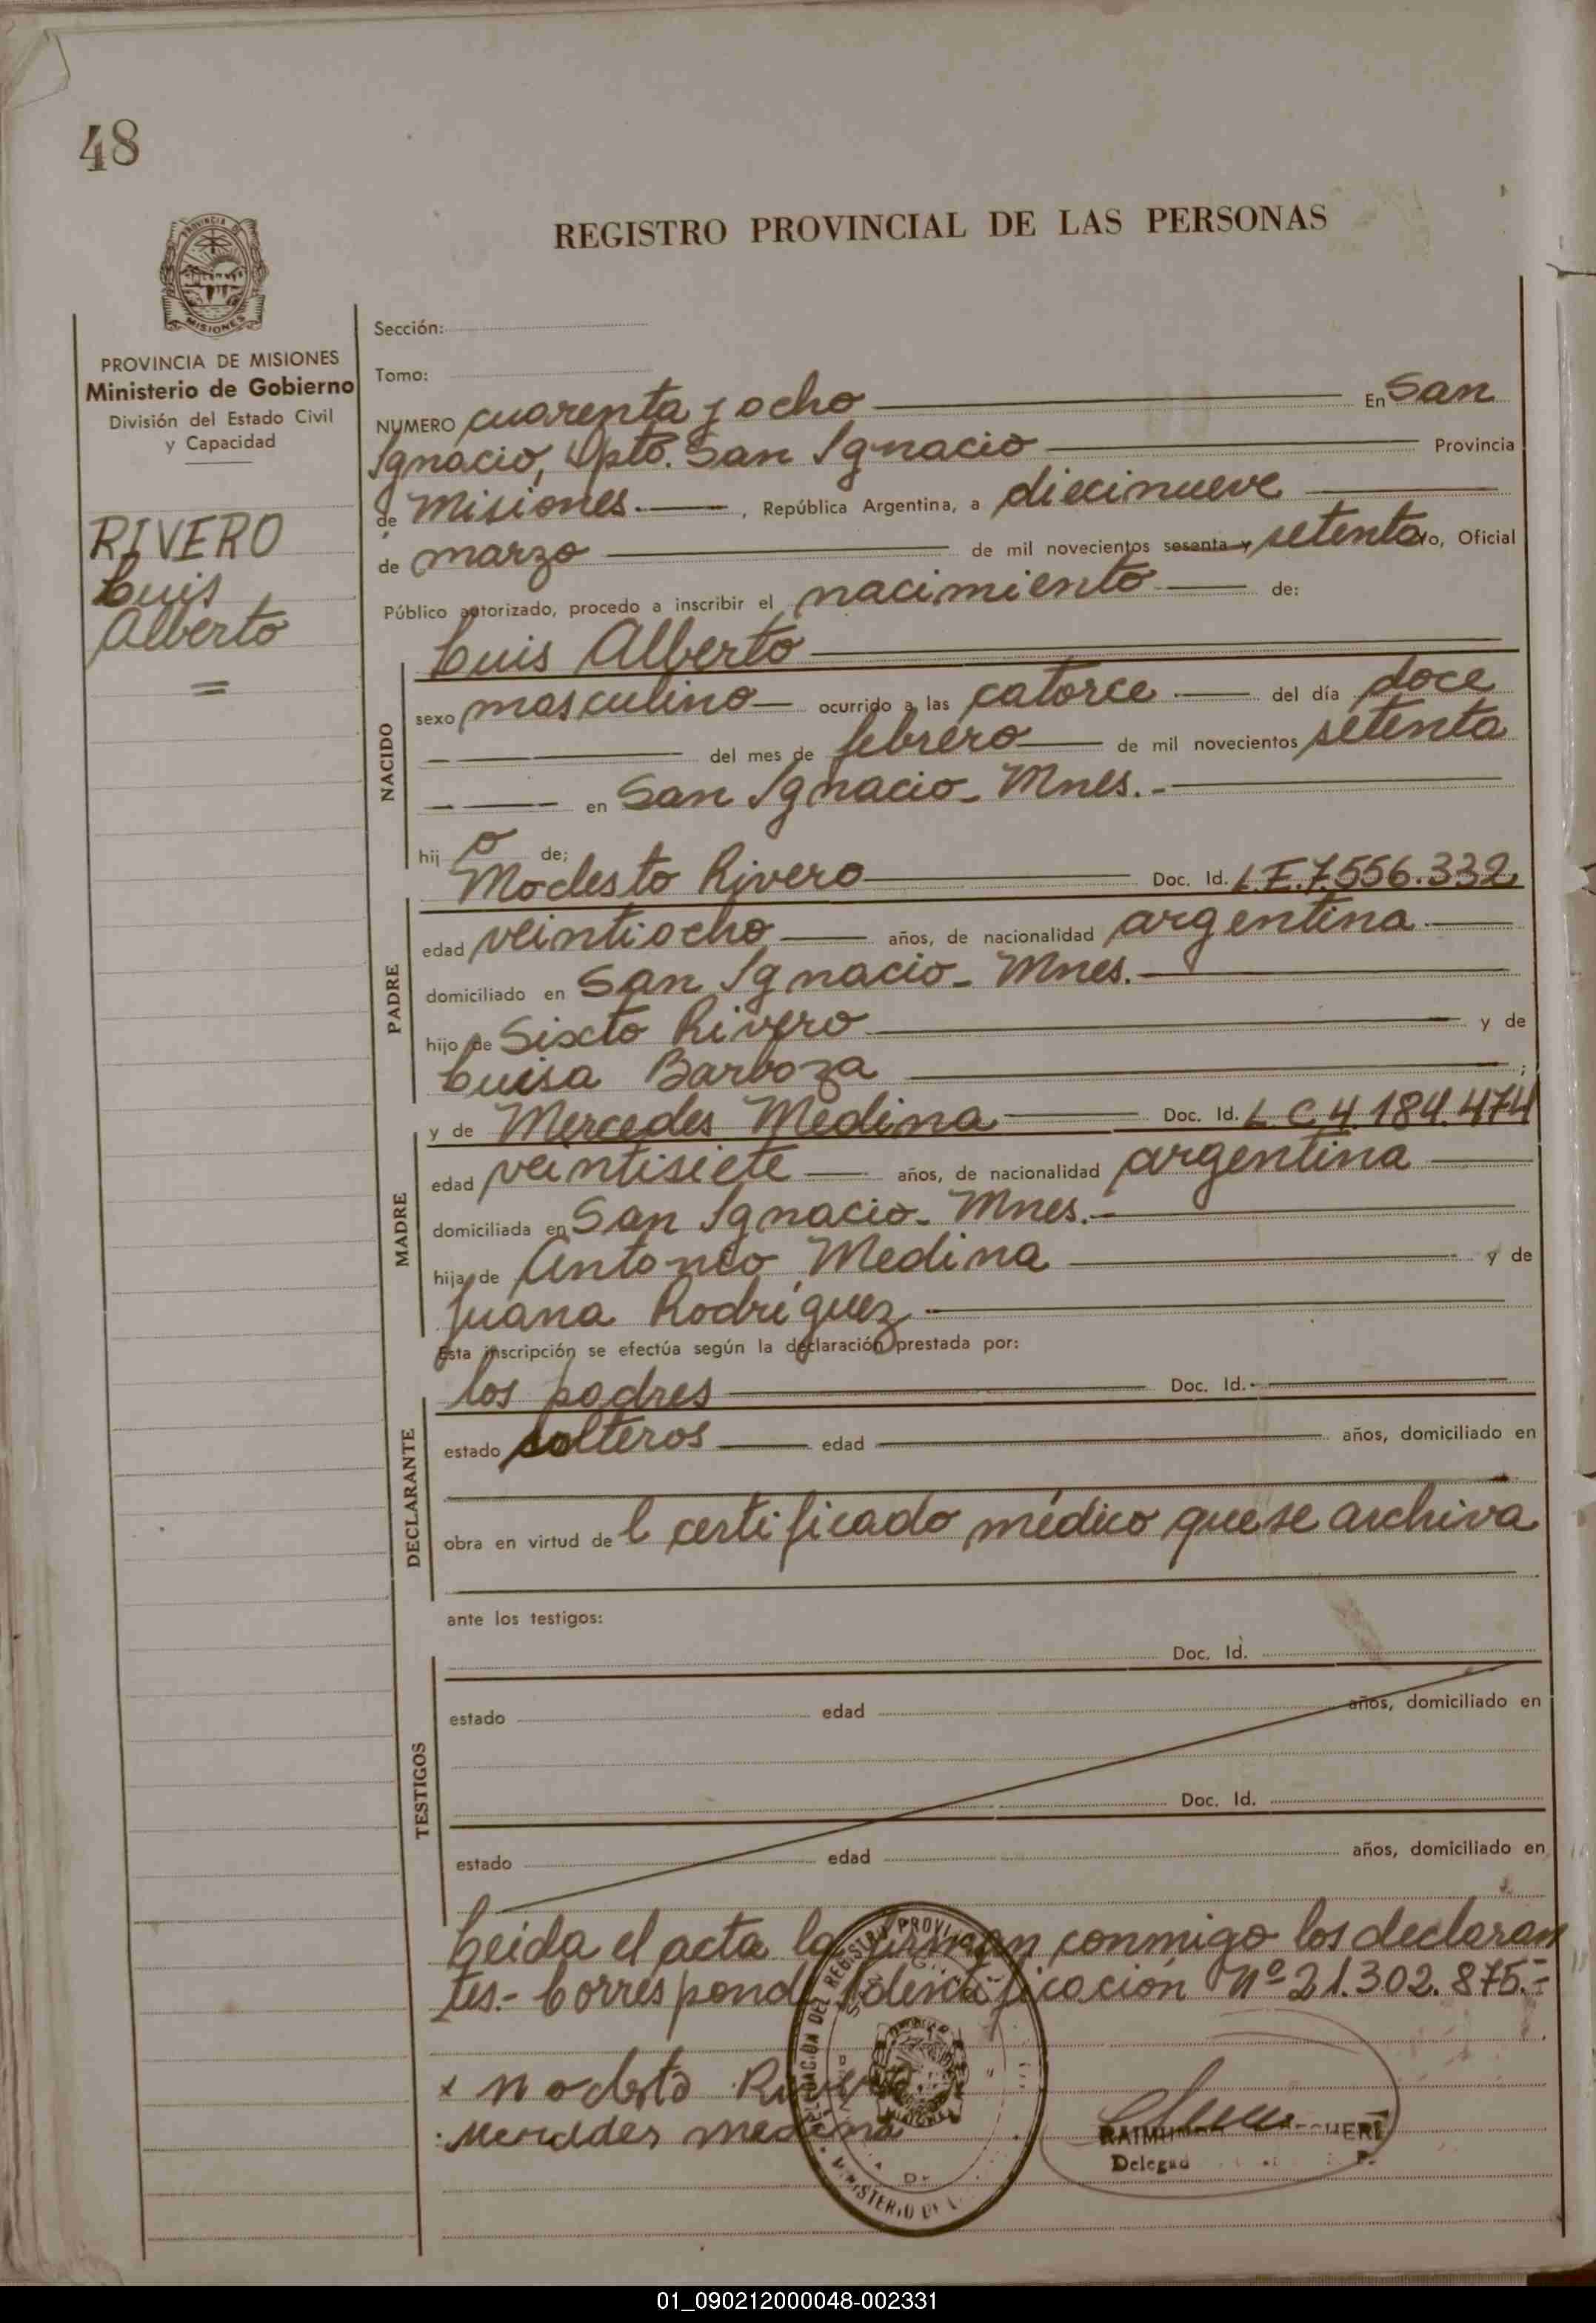 48
REGISTRO PROVINCIAL DE LAS PERSONAS
PROVINCIA DE MISIONES
Ministerio de Gobierno
División del Estado Civil
y Capacidad
RIVERO
Luis
Alberto
Sección:
Tomo:
NUMERO cuarenta y ocho En San
Ignacio, Dpto. San Ignacio Provincia
de Misiones.-, República Argentina, a diecinueve
de marzo de mil novecientos sesenta y setenta Yo, Oficial
Público autorizado, procedo a inscribir el nacimiento de:
Luis Alberto
NACIDO
sexo masculino ocurrido a las catorce del día doce
del mes de febrero de mil novecientos setenta
en San Ignacio- Mnes.-
hij o de;
Modesto Rivero Doc. Id. L.E.7.556.332
PADRE
edad veintiocho años, de nacionalidad argentina
domiciliado en San Ignacio- Mnes.-
hijo de Sixto Rivero y de
Luisa Barboza ;
y de Mercedes Medina Doc. Id. L.C.4.184.474
MADRE
edad veintisiete años, de nacionalidad argentina
domiciliada en San Ignacio- Mnes.-
hija de Antonio Medina y de
Juana Rodríguez.-
Esta inscripción se efectúa según la declaración prestada por:
los padres Doc. Id.-
DECLARANTE
estado solteros edad años, domiciliado en
obra en virtud de l certificado médico que se archiva
ante los testigos:
Doc. Id.
TESTIGOS
estado edad años, domiciliado en
Doc. Id.
estado edad años, domiciliado en
Leida el acta la firman conmigo los declaran
tes.- Corresponde Identificación Nº 21.302.875.-
x Modesto Rivero
Mercedes medina
Delegad
MISIONES
01_090212000048-002331